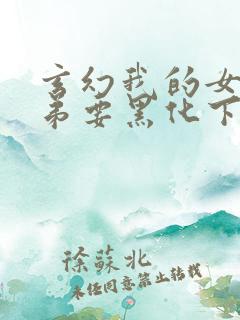 玄幻我的女
弟要黑化下
徐蘇北
未经同意禁止转载